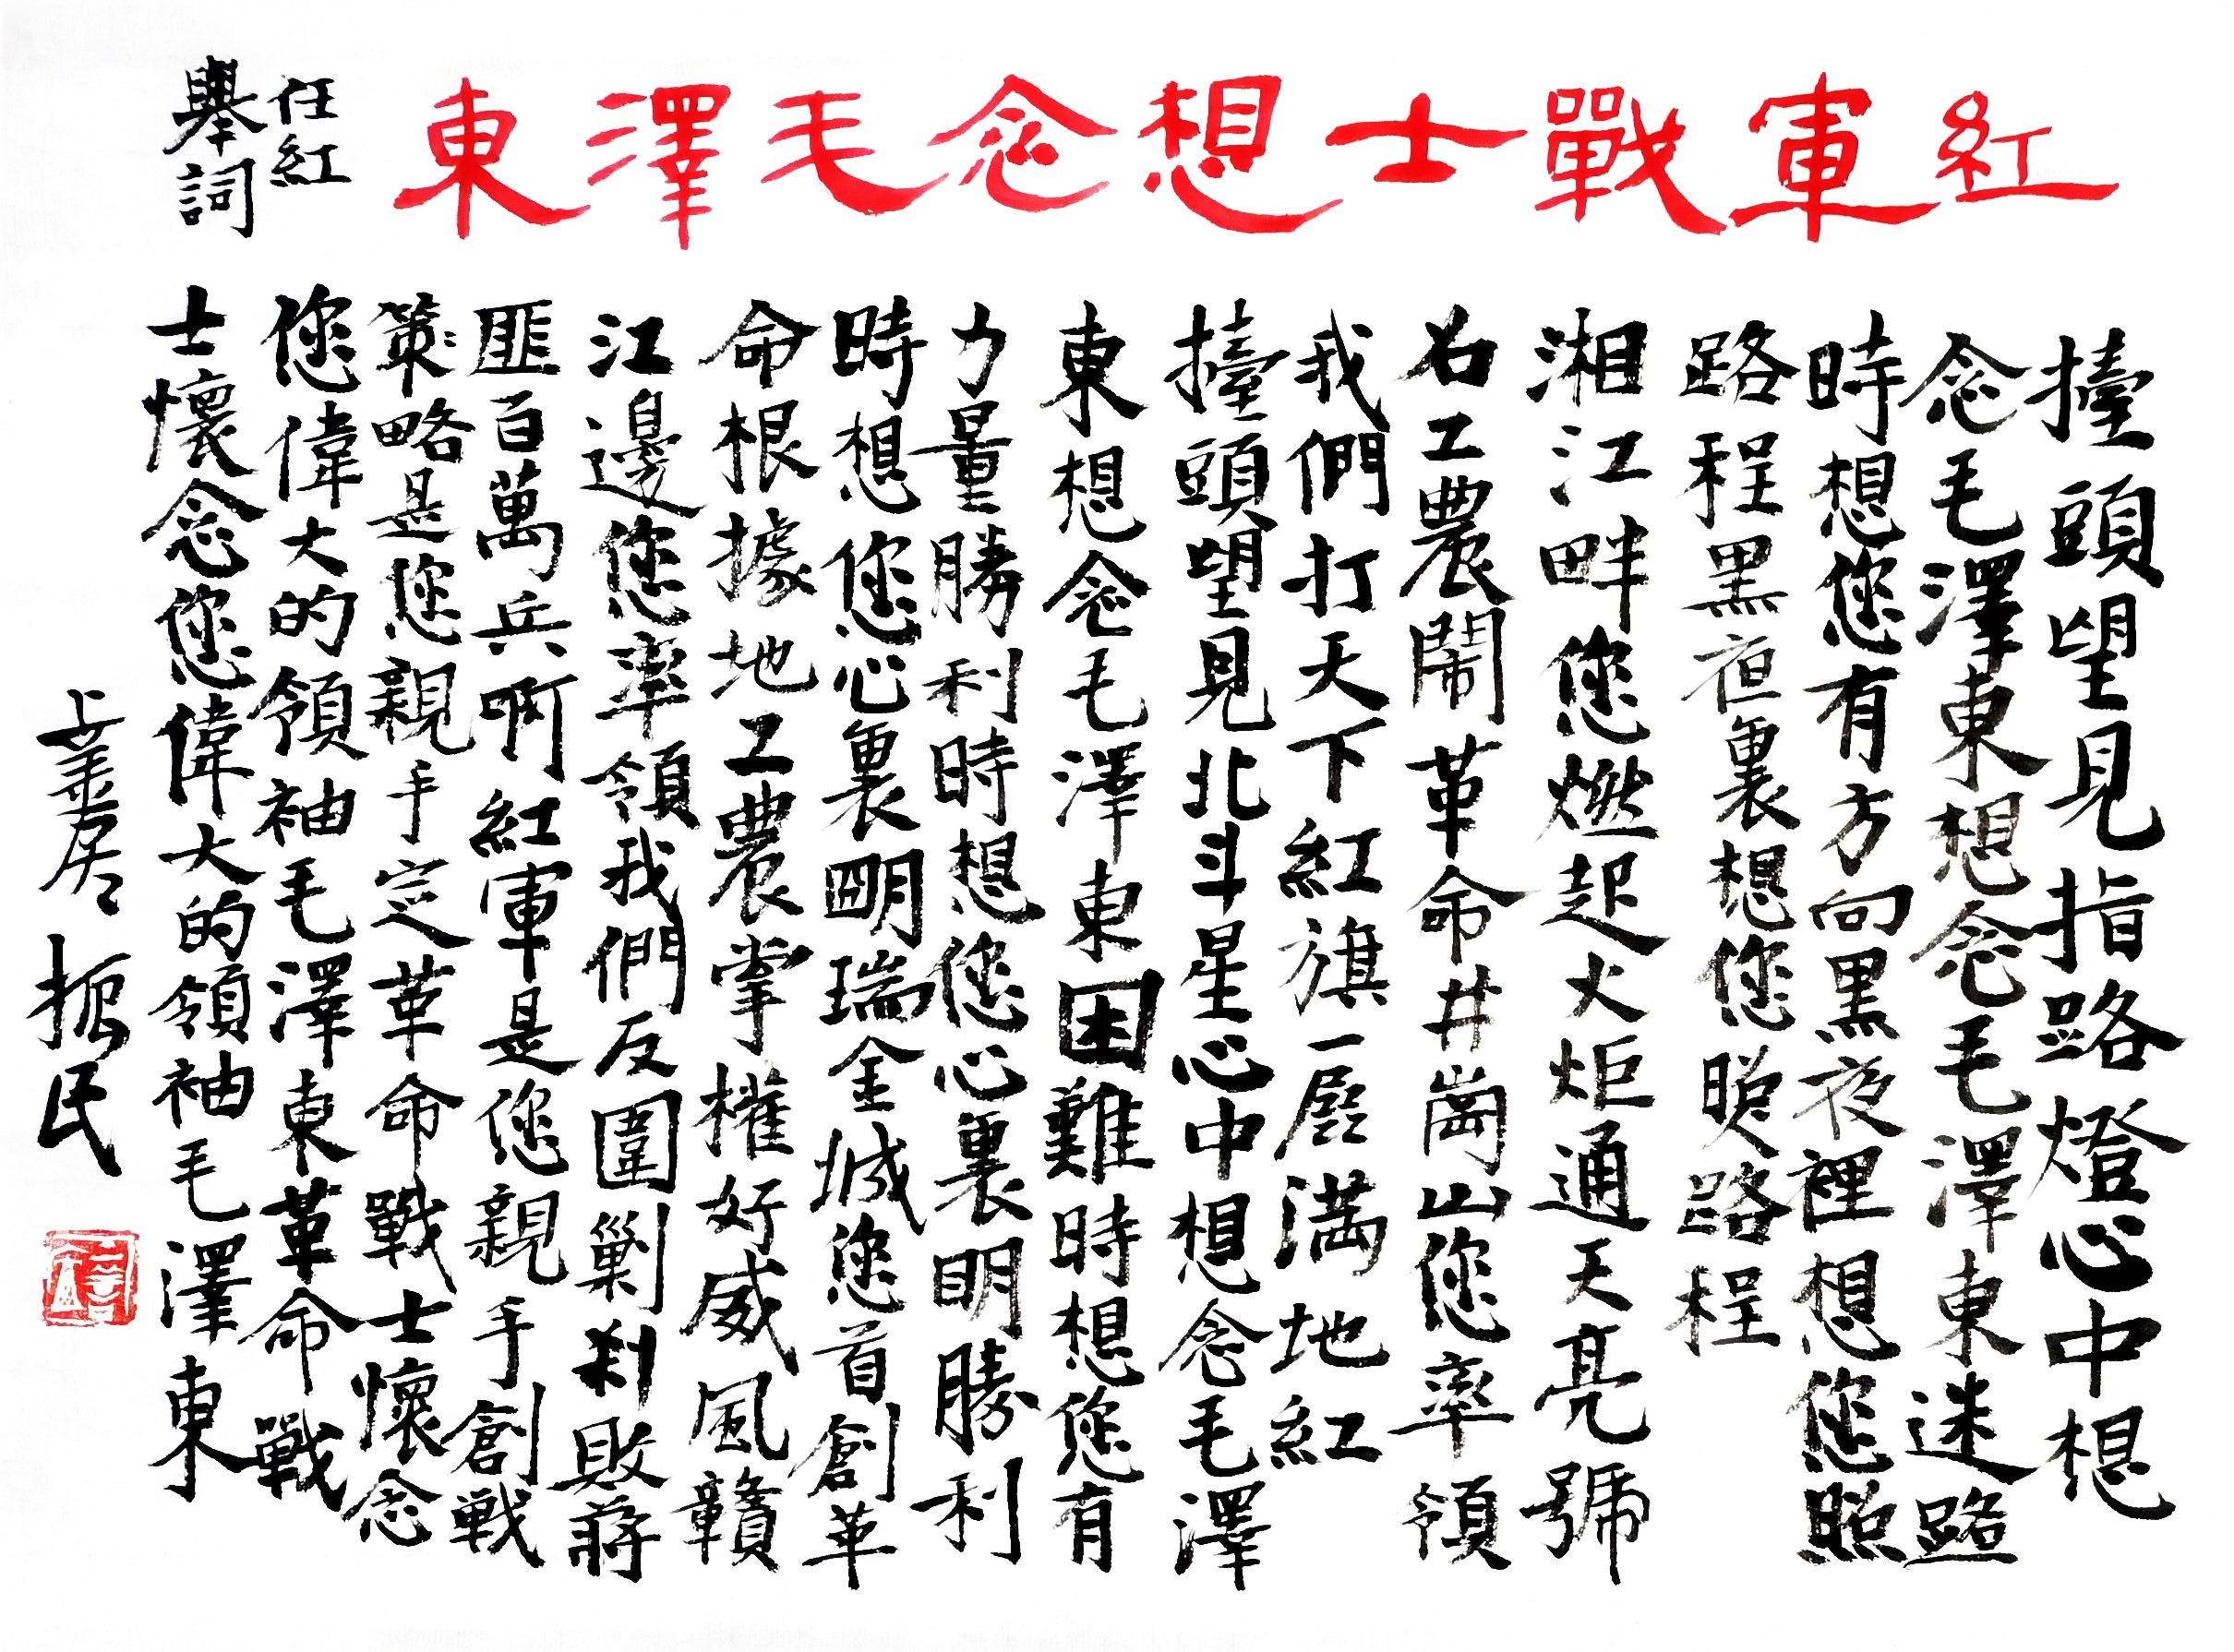 紅軍戰士想念毛澤東
任紅
舉詞
擡頭望見指路燈心中想
念毛澤東想念毛澤東迷路
時想您有方向黑夜裡想您照
路程黑夜裏想您照路程
湘江畔您燃起火炬通天亮號
召工農鬧革命井崗山您率領
我們打天下紅旗一展滿地紅
擡頭望見北斗星心中想念毛澤
東想念毛澤東困難時想您有
力量勝利時想您心裏明勝利
時想您心裏明瑞金城您首創革
命根據地工農掌權好威風贛
江邊您率領我們反圍剿打敗蔣
匪百萬兵啊紅軍是您親手創戰
策略是您親手定革命戰士懷念
您偉大的領袖毛澤東革命戰
士懷念您偉大的領袖毛澤東
振民